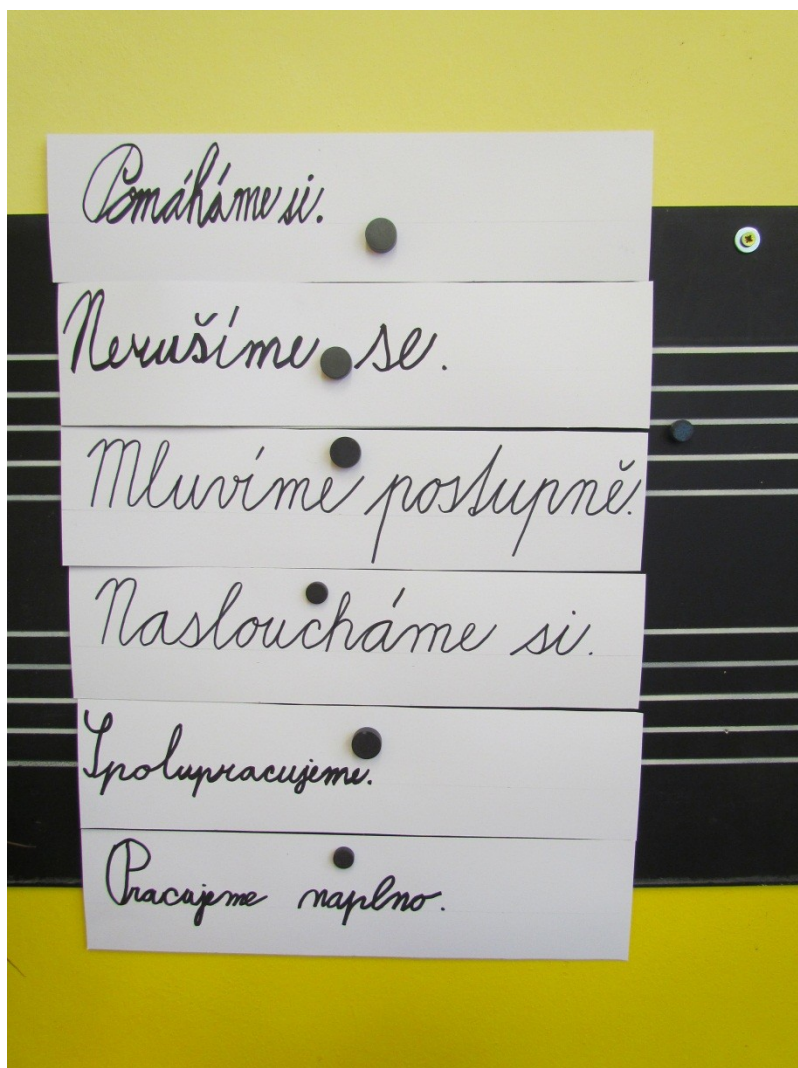 Pomáháme si.
Nerušíme se.
Mluvíme postupně.
Nasloucháme si.
Spolupracujeme.
Pracujeme naplno.